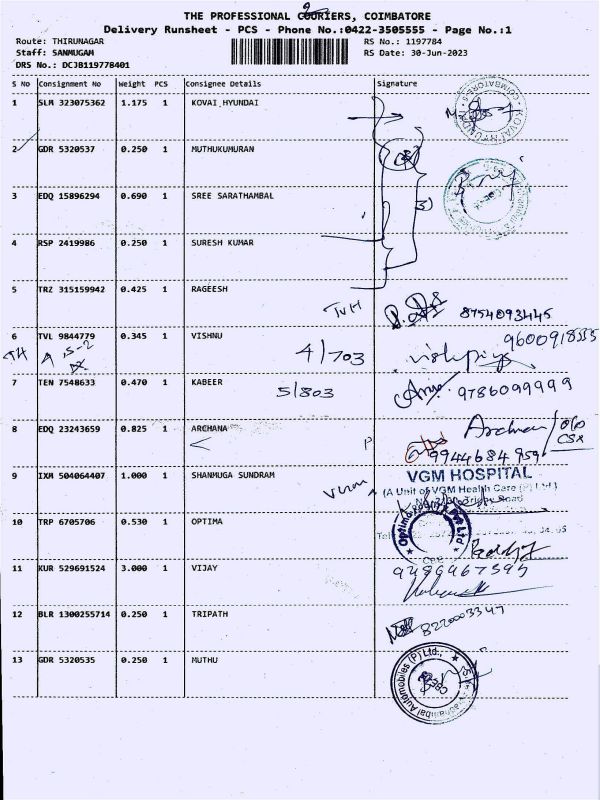 THE PROFESSIONAL COURIERS, COIMBATORE
Delivery Runsheet - PCS - Phone No.:0422-3505555 - Page No.:1
Route: THIRUNAGAR
Staff: SANMUGAM
DRS No.: DCJB119778401
RS No.: 1197784
RS Date: 30-Jun-2023
S No Consignment No Weight PCS Consignee Details Signature
1 SLM 323075362 1.175 1 KOVAI HYUNDAI
2 GDR 5320537 0.250 1 MUTHUKUMURAN
3 EDQ 15896294 0.690 1 SREE SARATHAMBAL
3)
4 RSP 2419986 0.250 1 SURESH KUMAR
5 TRZ 315159942 0.425 1 RAGEESH
TVH 8754093445
6 TVL 9844779 0.345 1 VISHNU
4/703
7 TEN 7548633 0.470 1 KABEER
5/803 9786099999
8 EDQ 23243659 0.825 1 ARCHANA
Archana
9 IXM 504064407 1.000 1 SHANMUGA SUNDRAM
VGM HOSPITAL
(A Unit of VGM Health Care (P) Ltd.)
10 TRP 6705706 0.530 1 OPTIMA
11 KUR 529691524 3.000 1 VIJAY
12 BLR 1300255714 0.250 1 TRIPATH
8220003347
13 GDR 5320535 0.250 1 MUTHU
Automobiles (P) Ltd.,